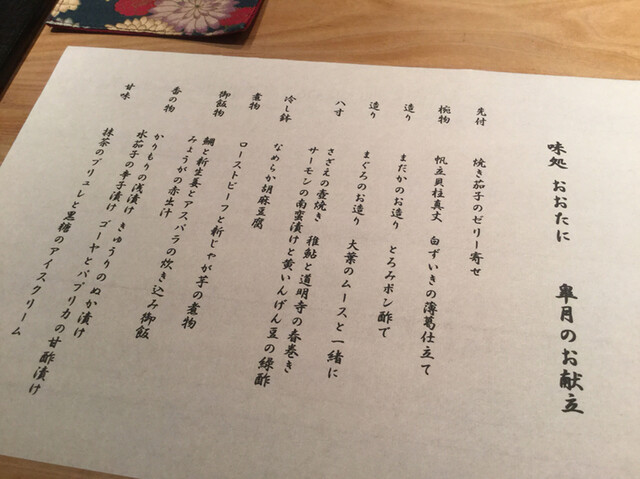 味処 おおたに 皐月のお献立
先付 焼き茄子のゼリー寄せ
椀物 帆立貝柱真丈 白ずいきの薄葛仕立て
造り まだかのお造り とろみポン酢て
造り まぐろのお造り 大葉のムースと一緒に
八寸 さざえの壺焼き 稚鮎と道明寺の春巻き
サーモンの南蛮漬けと黄いんげん豆の緑酢
冷し鉢 なめらか胡麻豆腐
煮物 ローストビーフと新じゃが芋の煮物
御飯物 鯛と新生姜とアスパラの炊き込み御飯
みょうがの赤出汁
香の物 かりもりの浅漬け きゅうりのぬか漬け
水茄子の辛子漬け ゴーヤとパプリカの甘酢漬け
甘味 抹茶のブリュレと黒糖のアイスクリーム